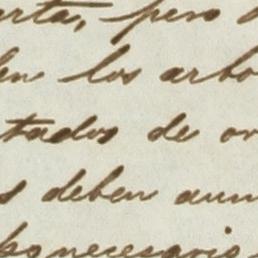 erta, pero
en los arbo
tados de or
s deben aum
necesario